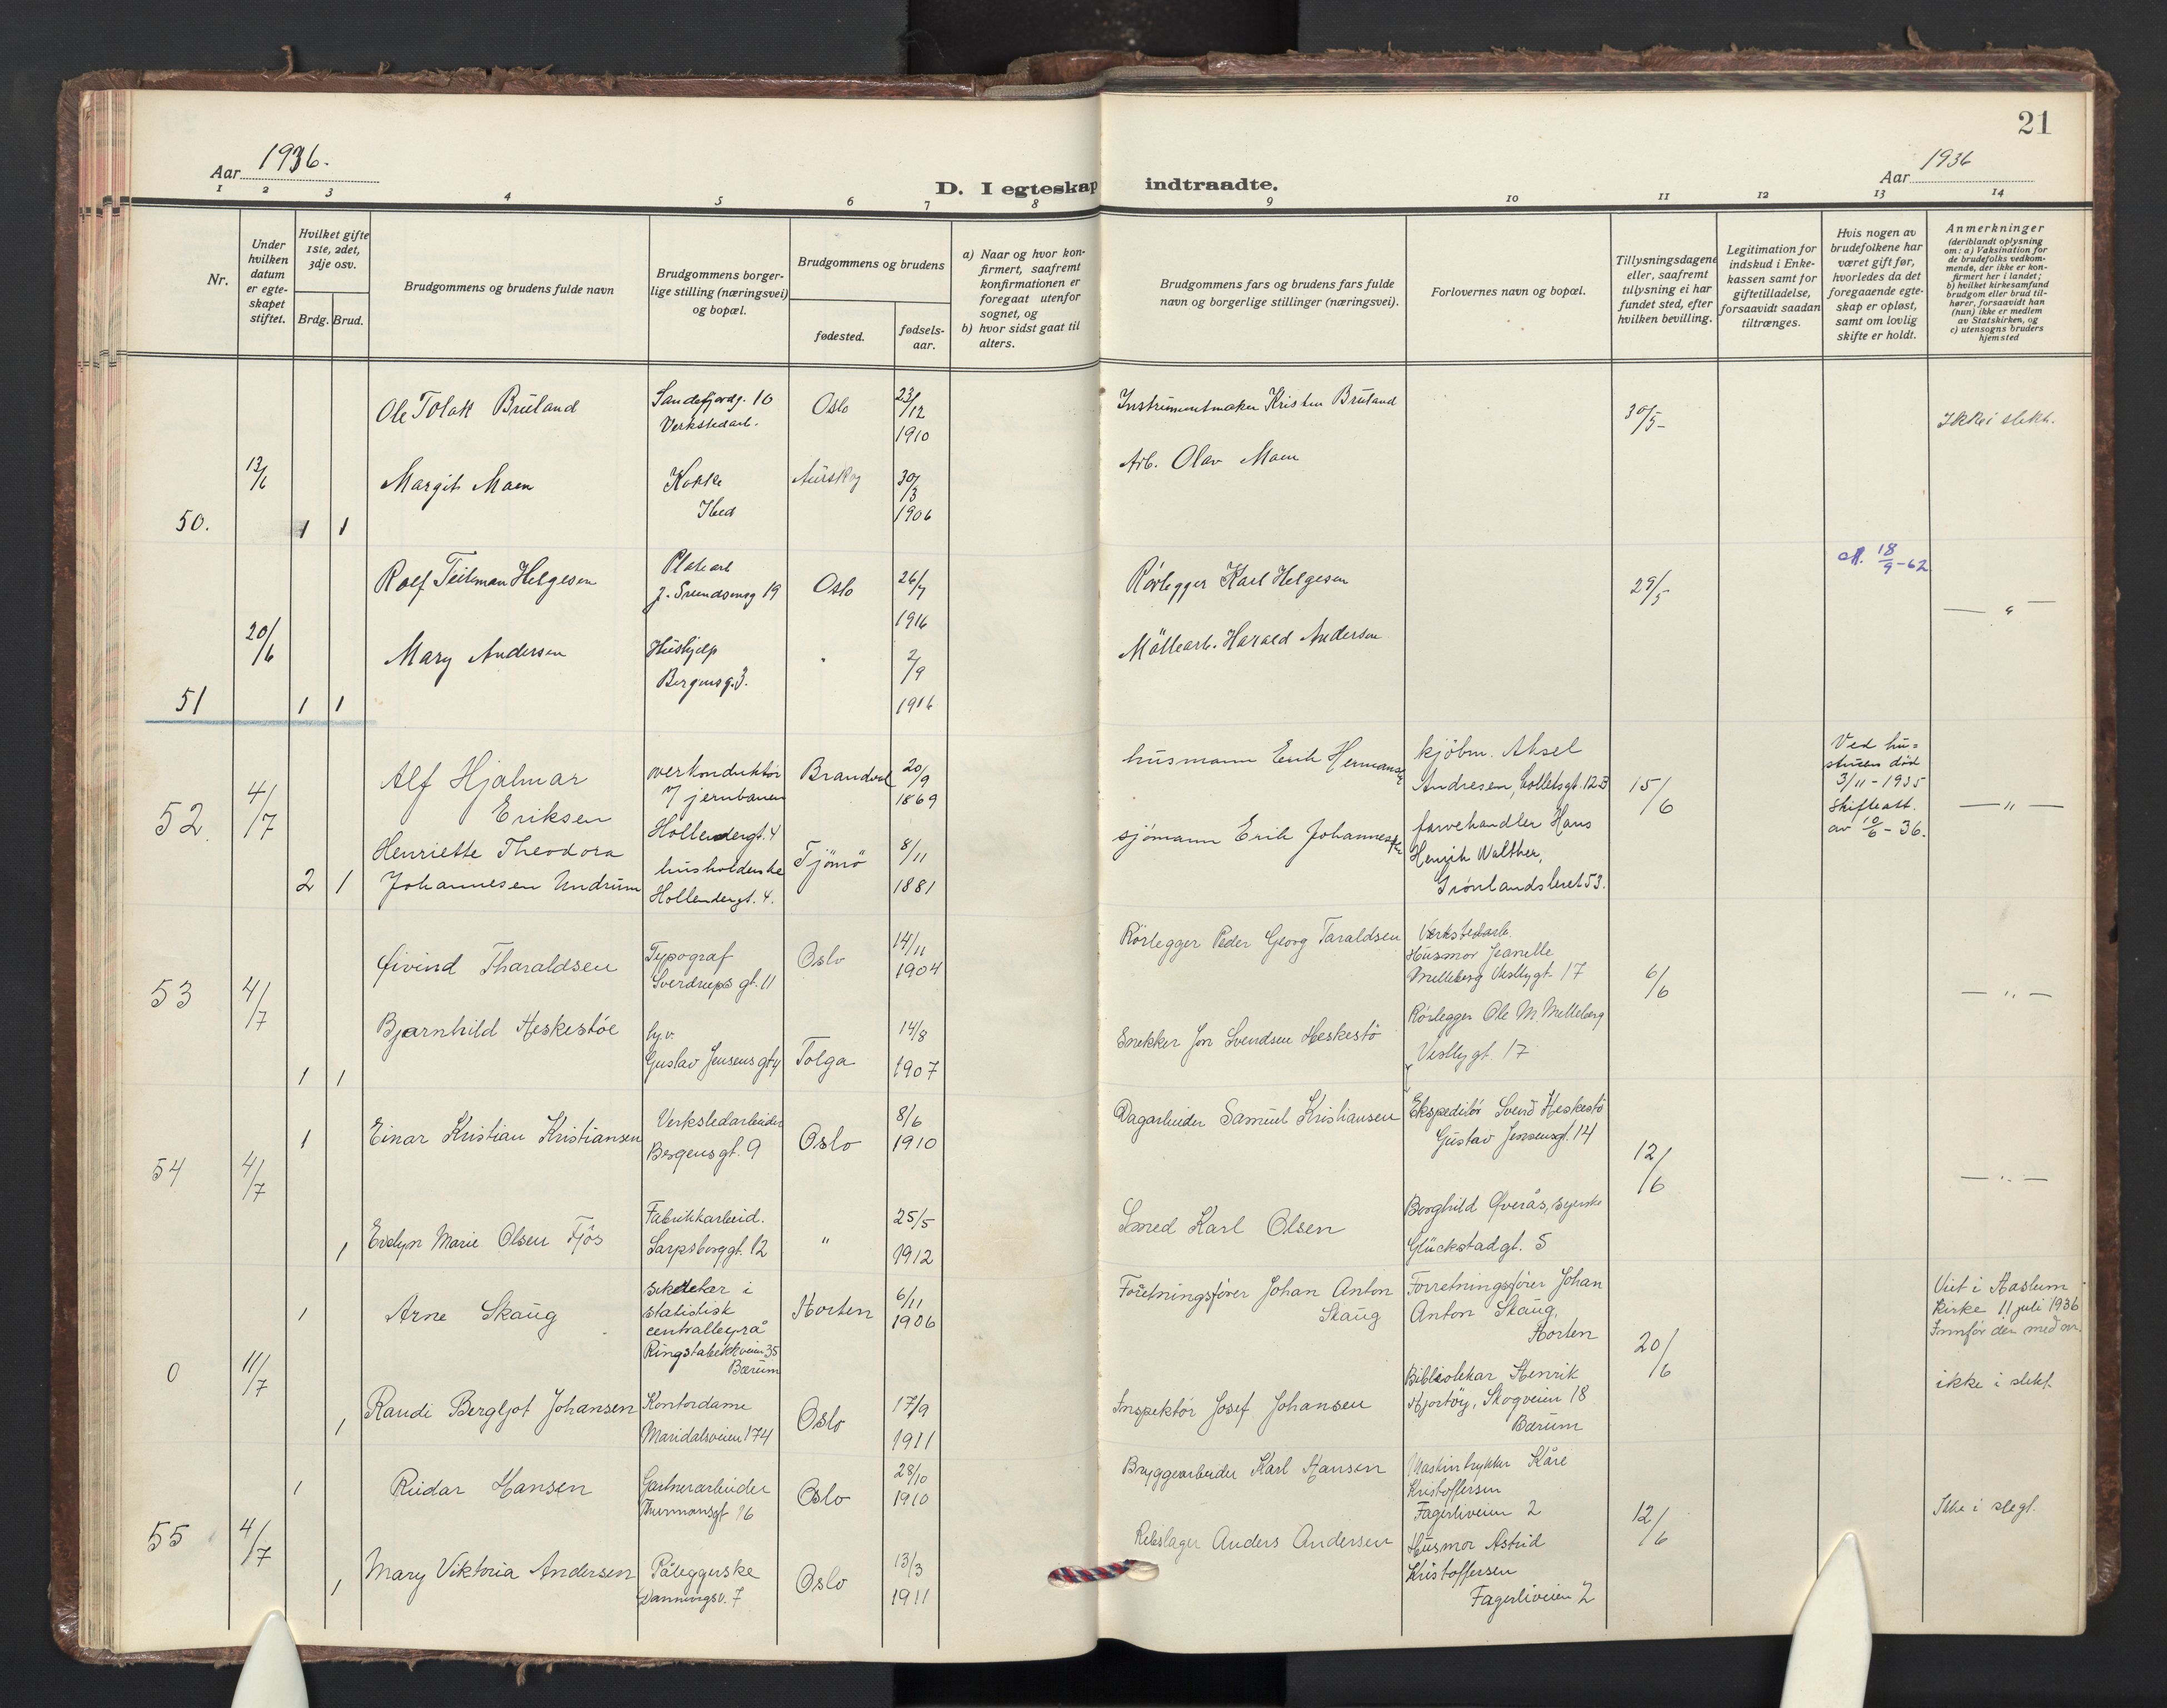 21
Aar 1936.
Aar 1936
D. I egteskap indtraadte.
1 2 3 4 5 6 7 8 9 10 11 12 13 14
Nr.
Under hvilken datum er egte-skapet stiftet.
Hvilket gifte 1ste, 2det, 3dje osv.
Brdg. Brud.
Brudgommens og brudens fulde navn
Brudgommens borger-lige stilling (næringsvei) og bopæl.
Brudgommens og brudens
fødested.
fødsels-aar.
a) Naar og hvor kon-firmert, saafremt konfirmationen er foregaat utenfor sognet, og
b) hvor sidst gaat til alters.
Brudgommens fars og brudens fars fulde navn og borgerlige stillinger (næringsvei).
Forlovernes navn og bopæl.
Tillysningsdagene eller, saafremt tillysning ei har fundet sted, efter hvilken bevilling.
Legitimation for indskud i Enke-kassen samt for giftetilladelse, forsaavidt saadan tiltrænges.
Hvis nogen av brudefolkene har været gift før, hvorledes da det foregaaende egte-skap er opløst, samt om lovlig skifte er holdt.
Anmerkninger (deriblandt oplysning om: a) Vaksination for de brudefolks vedkom-mende, der ikke er kon-firmert her i landet; b) hvilket kirkesamfund brudgom eller brud til-hører, forsaavidt han (hun) ikke er medlem av Statskirken, og c) utensogns bruders hjemsted
50.
13/6
1 1
Ole Tolak Bruland
Sandefjordg. 10
Verkstedarb.
Oslo
23/12
1910
Instrumentmaker Kristen Bruland
30/5-
Ikke i slekt.
Margit Maen
Kokke
Ibid
Aurskog
30/3
1906
Arb. Olav Maen
51
20/6
1 1
Rolf Teilman Helgesen
Platearb
J. Svendsensg 19
Oslo
26/7
1916
Rørlegger Karl Helgesen
29/5
18/9-62
— " —
Mary Andersen
Hushjelp
Bergensg. 3.
2/9
1916
Møllearb. Harald Andersen
52
4/7
2 1
Alf Hjalmar
Eriksen
overkonduktør
v/ jernbanen
Hollendergt. 4
Brandval
20/9
1869
husmann Erik Hermansen
kjøbm. Aksel
Andresen, Colletsgt. 12B
15/6
Ved hu=
struens død
3/11-1935
Skifteatt.
av 10/6-36.
— " —
Henriette Theodora
Johannesen Undrum
husholderske
Hollendergt. 4.
Tjømø
8/11
1881
sjømann Erik Johannesen
farvehandler Hans
Henrik Walther,
Grønlandsleret 53.
53
4/7
1 1
Øivind Tharaldsen
Typograf
Sverdrups gt. 11
Oslo
14/11
1904
Rørlegger Peder Georg Taraldsen
Verkstedarb.
Husmor Jeanette
Melleberg Vestbygt. 17
6/6
— " —
Bjarnhild Heskestøe
hj.v.
Gustav Jensens gt 4
Tolga
14/8
1907
Snekker Jon Svendsen Heskestø
Rørlegger Ole M. Melleberg
Vestbygt. 17
54
4/7
1
Einar Kristian Kristiansen
Verkstedarbeider
Bergensgt. 9
Oslo
8/6
1910
Dagarbeider Samuel Kristiansen
Ekspeditør Svend Heskestø
Gustav Jensensgt. 14
12/6
— " —
1
Evelyn Marie Olsen Fjøs
Fabrikkarbeid.
Sarpsborggt. 12
"
25/5
1912
Smed Karl Olsen
Borghild Øverås, syerske
Glückstadgt. 5
0
11/7
1
Arne Skaug
sekretær i
statistisk
centralbyrå
Ringstabekkveien 35
Bærum
Horten
6/11
1906
Forretningsfører Johan Anton
Skaug
Forretningsfører Johan
Anton Skaug,
Horten
20/6
Viet i Haslum
kirke 11 juli 1936
Innfør der med nr.
ikke i slekt
1
Randi Bergljot Johansen
Kontordame
Maridalsveien 174
Oslo
17/9
1911
Inspektør Josef Johansen
Bibliotekar Henrik
Hjortøy, Skogveien 18
Bærum
55
4/7
1
Reidar Hansen
Gartnerarbeider
Thurmannsgt 16
Oslo
28/10
1910
Bryggearbeider Karl Hansen
Maskintrykker Kåre
Kristoffersen
Fagerliveien 2
12/6
Ikke i slegt.
1
Mary Viktoria Andersen
Påleggerske
Danningsv. 7
Oslo
13/3
1911
Rebslager Anders Andersen
Husmor Astrid
Kristoffersen
Fagerliveien 2